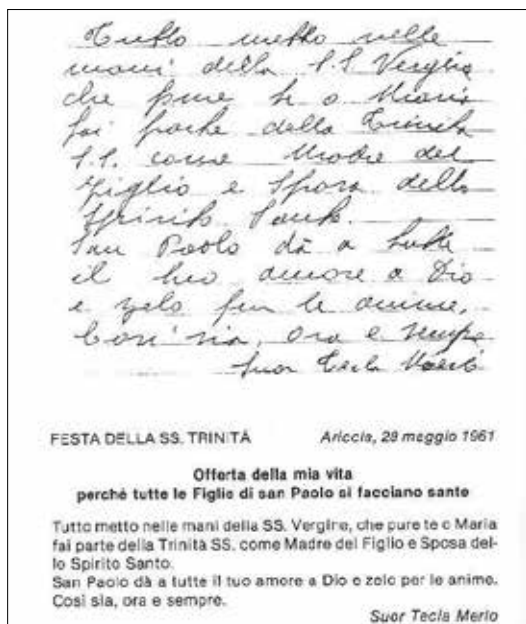 Tutto metto nelle
mani della S.S Vergine
che pure te o Maria
fai parte della Trinità
S.S. come Madre del
Figlio e Sposa dello
Spirito Santo.
San Paolo dà a tutte
il tuo amore a Dio
e zelo per le anime,
Così sia, ora e sempre
Suor Tecla Merlo
FESTA DELLA SS. TRINITÀ Ariccia, 28 maggio 1961
Offerta della mia vita
perchè tutte le Figlie di san Paolo si facciano sante
Tutto metto nelle mani della SS. Vergine, che pure te o Maria
fai parte della Trinità SS. come Madre del Figlio e Sposa del-
lo Spirito Santo.
San Paolo dà a tutte il tuo amore a Dio e zelo per le anime.
Così sia, ora e sempre.
Suor Tecla Merlo